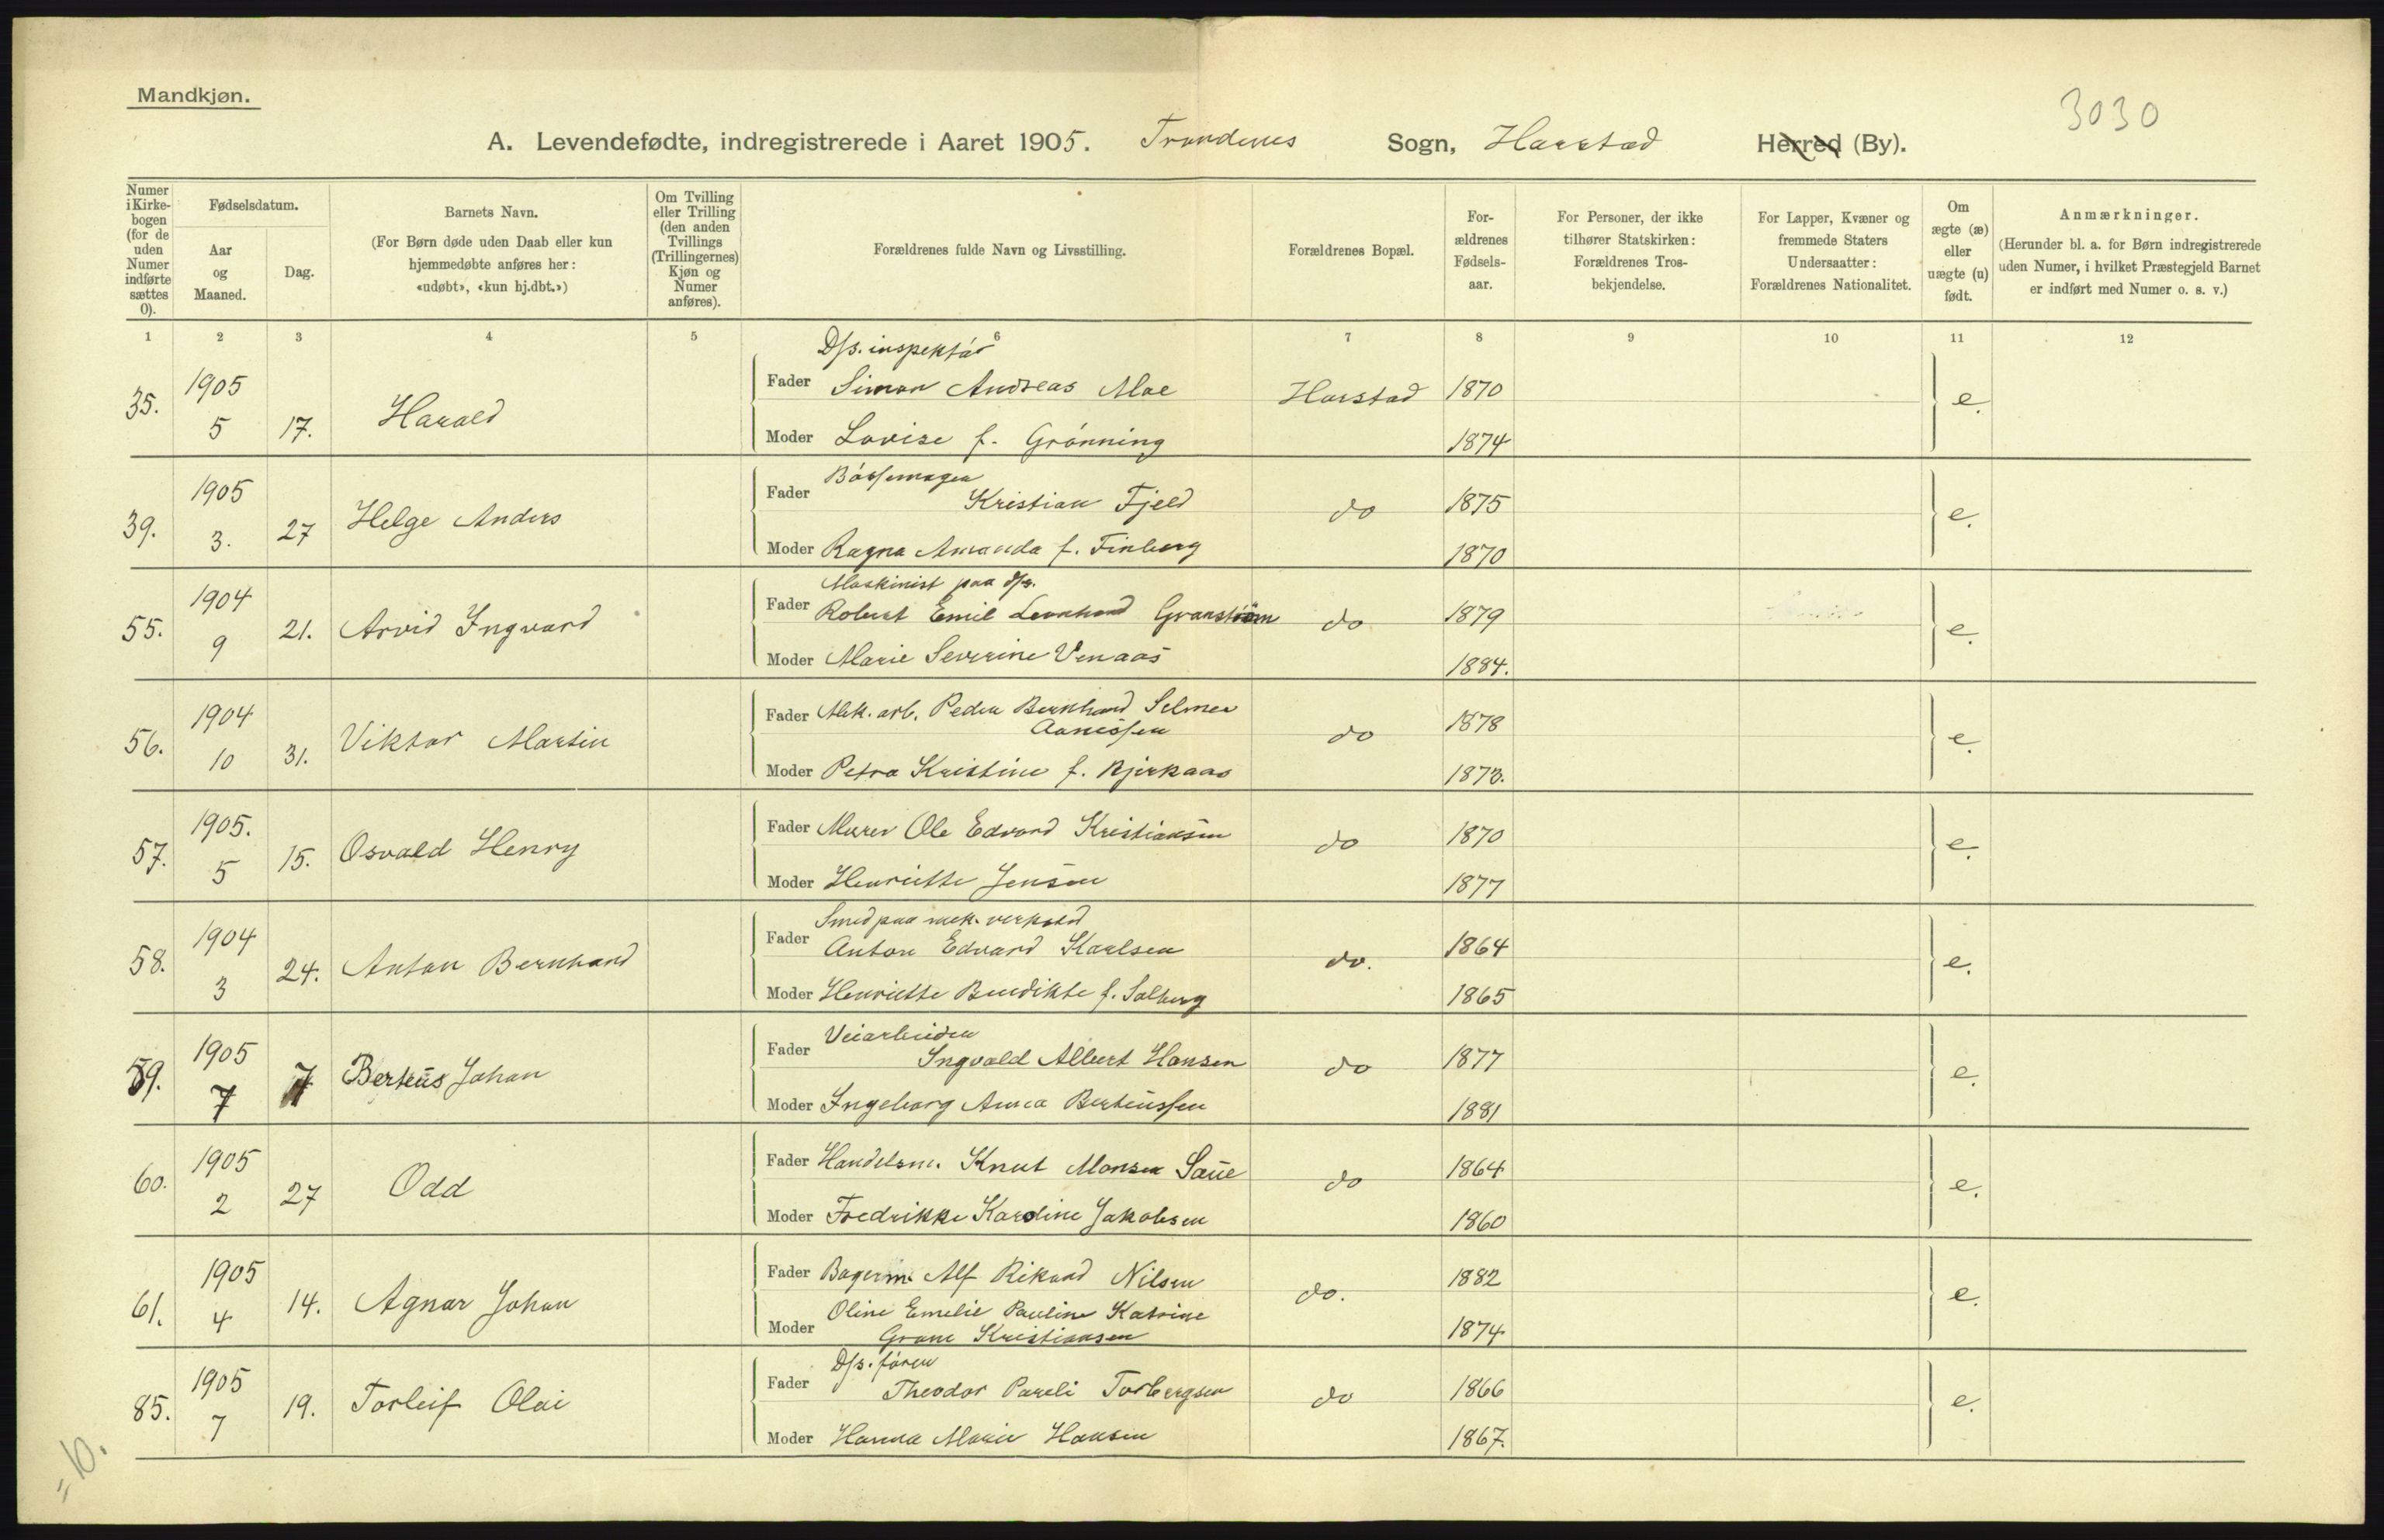 Mandkjøn.
3030
A. Levendefødte, indregistrerede i Aaret 1905. Trondenes Sogn, Harstad Herred (By).
Numer i Kirkebogen (for de uden Numer indførte sættes 0).
Fødselsdatum.
Aar og Maaned.
Dag.
Barnets Navn.
(For Børn døde uden Daab eller kun hjemmedøbte anføres her: «udøbt», «kun hj.dbt.»)
Om Tvilling eller Trilling (den anden Tvillings (Trillingernes) Kjøn og Numer anføres).
Forældrenes fulde Navn og Livsstilling.
Forældrenes Bopæl.
Forældrenes Fødselsaar.
For Personer, der ikke tilhører Statskirken: Forældrenes Trosbekjendelse.
For Lapper, Kvæner og fremmede Staters Undersaatter: Forældrenes Nationalitet.
Om ægte (æ) eller uægte (u) født.
Anmærkninger.
(Herunder bl. a. for Børn indregistrerede uden Numer, i hvilket Præstegjeld Barnet er indført med Numer o. s. v.)
1 2 3 4 5 6 7 8 9 10 11 12
D/s. inspektør
35. 1905 5 17. Harald Fader Simon Andreas Moe Harstad 1870 e.
Moder Lovise f. Grønning 1874
Bøssemager
39. 1905 3. 27 Helge Anders Fader Kristian Fjeld do 1875 e.
Moder Ragna Amanda f. Finberg 1870
Maskinist paa d/s.
55. 1904 9 21. Arvid Ingvard Fader Robert Emil Leonhard Granstrøm do 1879 e.
Moder Marie Severine Venaas 1884.
56. 1904 10 31. Viktor Martin Fader Mek. arb. Peder Bernhard Selmer do 1878 e.
Aanessen
Moder Petra Kristine f. Bjerkaas 1873.
57. 1905. 5 15. Osvald Henry Fader Murer Ole Edvard Kristiansen do 1870 e.
Moder Henriette Jensen 1877
Smed paa mek. verksted
58. 1904 3 24. Anton Bernhard Fader Anton Edvard Karlsen do. 1864 e.
Moder Henriette Benedikte f. Solberg 1865
Veiarbeider
59. 1905 7 7 Berteus Johan Fader Ingvald Albert Hansen do 1877 e.
Moder Ingeborg Anna Berteussen 1881
60. 1905 2 27 Odd Fader Handelsm. Knut Monsen Saue do 1864 e.
Moder Fredrikke Karoline Jakobsen 1860
61. 1905 4 14. Agnar Johan Fader Bagerm. Alf Rikard Nilsen do. 1882 e.
Oline Emelie Pauline Katrine
Moder Grane Kristiansen 1874
D/s. fører
85. 1905 7 19. Torleif Olai Fader Theodor Pareli Torbergsen do 1866 e.
Moder Hanna Marie Hansen 1867.
= 10.